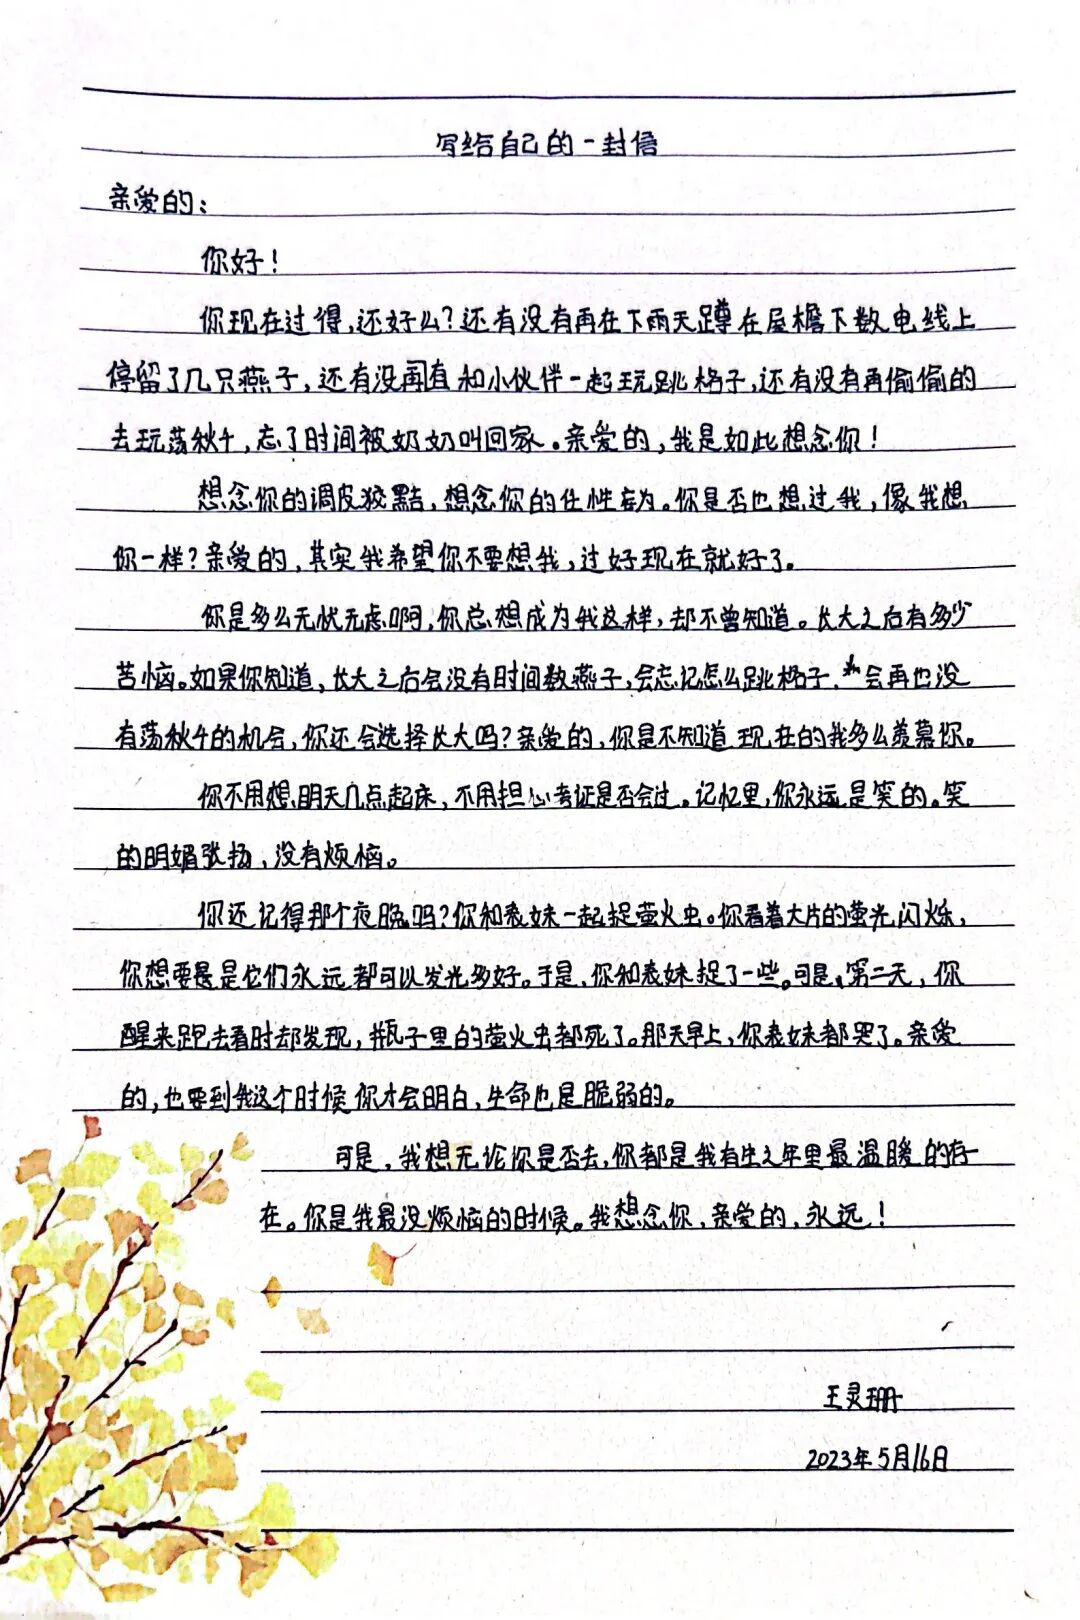 写给自己的一封信
亲爱的：
你好！
你现在过得,还好么？还有没有再在下雨天蹲在屋檐下数电线上
停留了几只燕子,还有没再有和小伙伴一起玩跳格子,还有没有再偷偷的
去玩荡秋千,忘了时间被奶奶叫回家。亲爱的,我是如此想念你！
想念你的调皮狡黠,想念你的任性妄为。你是否也想过我,像我想
你一样？亲爱的,其实我希望你不要想我,过好现在就好了。
你是多么无忧无虑啊,你总想成为我这样,却不曾知道。长大之后有多少
苦恼。如果你知道,长大之后会没有时间数燕子,会忘记怎么跳格子,会再也没
有荡秋千的机会,你还会选择长大吗？亲爱的,你是不知道现在的我多么羡慕你。
你不用想明天几点起床,不用担心考证是否会过。记忆里,你永远是笑的。笑
的明媚张扬,没有烦恼。
你还记得那个夜晚吗？你和表妹一起捉萤火虫。你看着大片的萤光闪烁,
你想要是是它们永远都可以发光多好。于是,你和表妹捉了一些。可是,第二天,你
醒来跑去看时却发现,瓶子里的萤火虫都死了。那天早上,你表妹都哭了。亲爱
的,也要到我这个时候你才会明白,生命也是脆弱的。
可是,我想无论你是否去,你都是我有生之年里最温暖的存
在。你是我最没烦恼的时候。我想念你,亲爱的,永远！
王灵珊
2023年5月16日